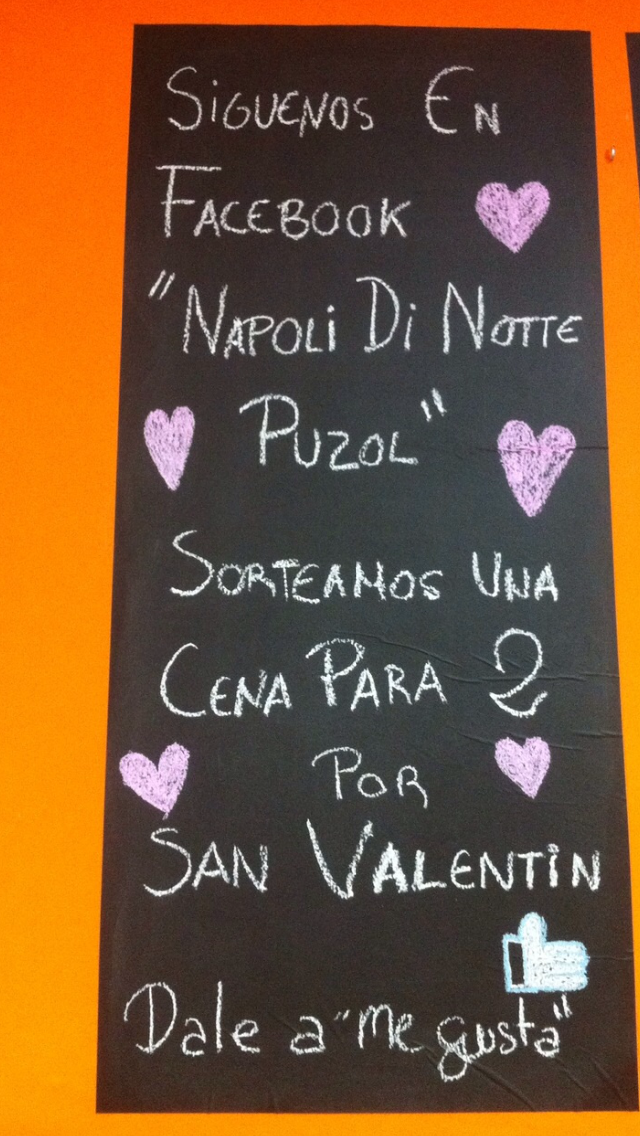 SiGUENOS EN
FACEBOOK
"NAPOLi Di NOTTE
PUZOL"
SORTEAMOS UNA
CENA PARA 2
POR
SAN VALENTiN
Dale a "me gusta"